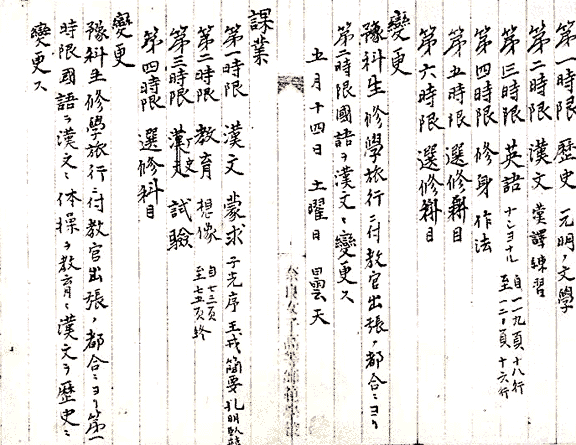 第一時限 歴史 元明ノ文學
第二時限 漢文 漢譯練習
第三時限 英語 ナショナル 自一一九頁十八行
至一二〇頁十六行
第四時限 修身 作法
第五時限 選修科目
第六時限 選修科目
變更
豫科生修學旅行ニ付教官出張ノ都合ニヨリ
第二時限國語ヲ漢文ニ變更ス
五月十四日 土曜日 曇天
奈良女子高等師範學校
課業
第一時限 漢文 蒙求 子光序 王戎簡要 孔明臥龍
第二時限 教育 想像 自七三頁
至七五頁終
第三時限 漢文 試驗
第四時限 選修科目
變更
豫科生修學旅行ニ付教官出張ノ都合ニヨリ第一
時限國語ヲ漢文ニ体操ヲ教育ニ漢文ヲ歴史ニ
變更ス